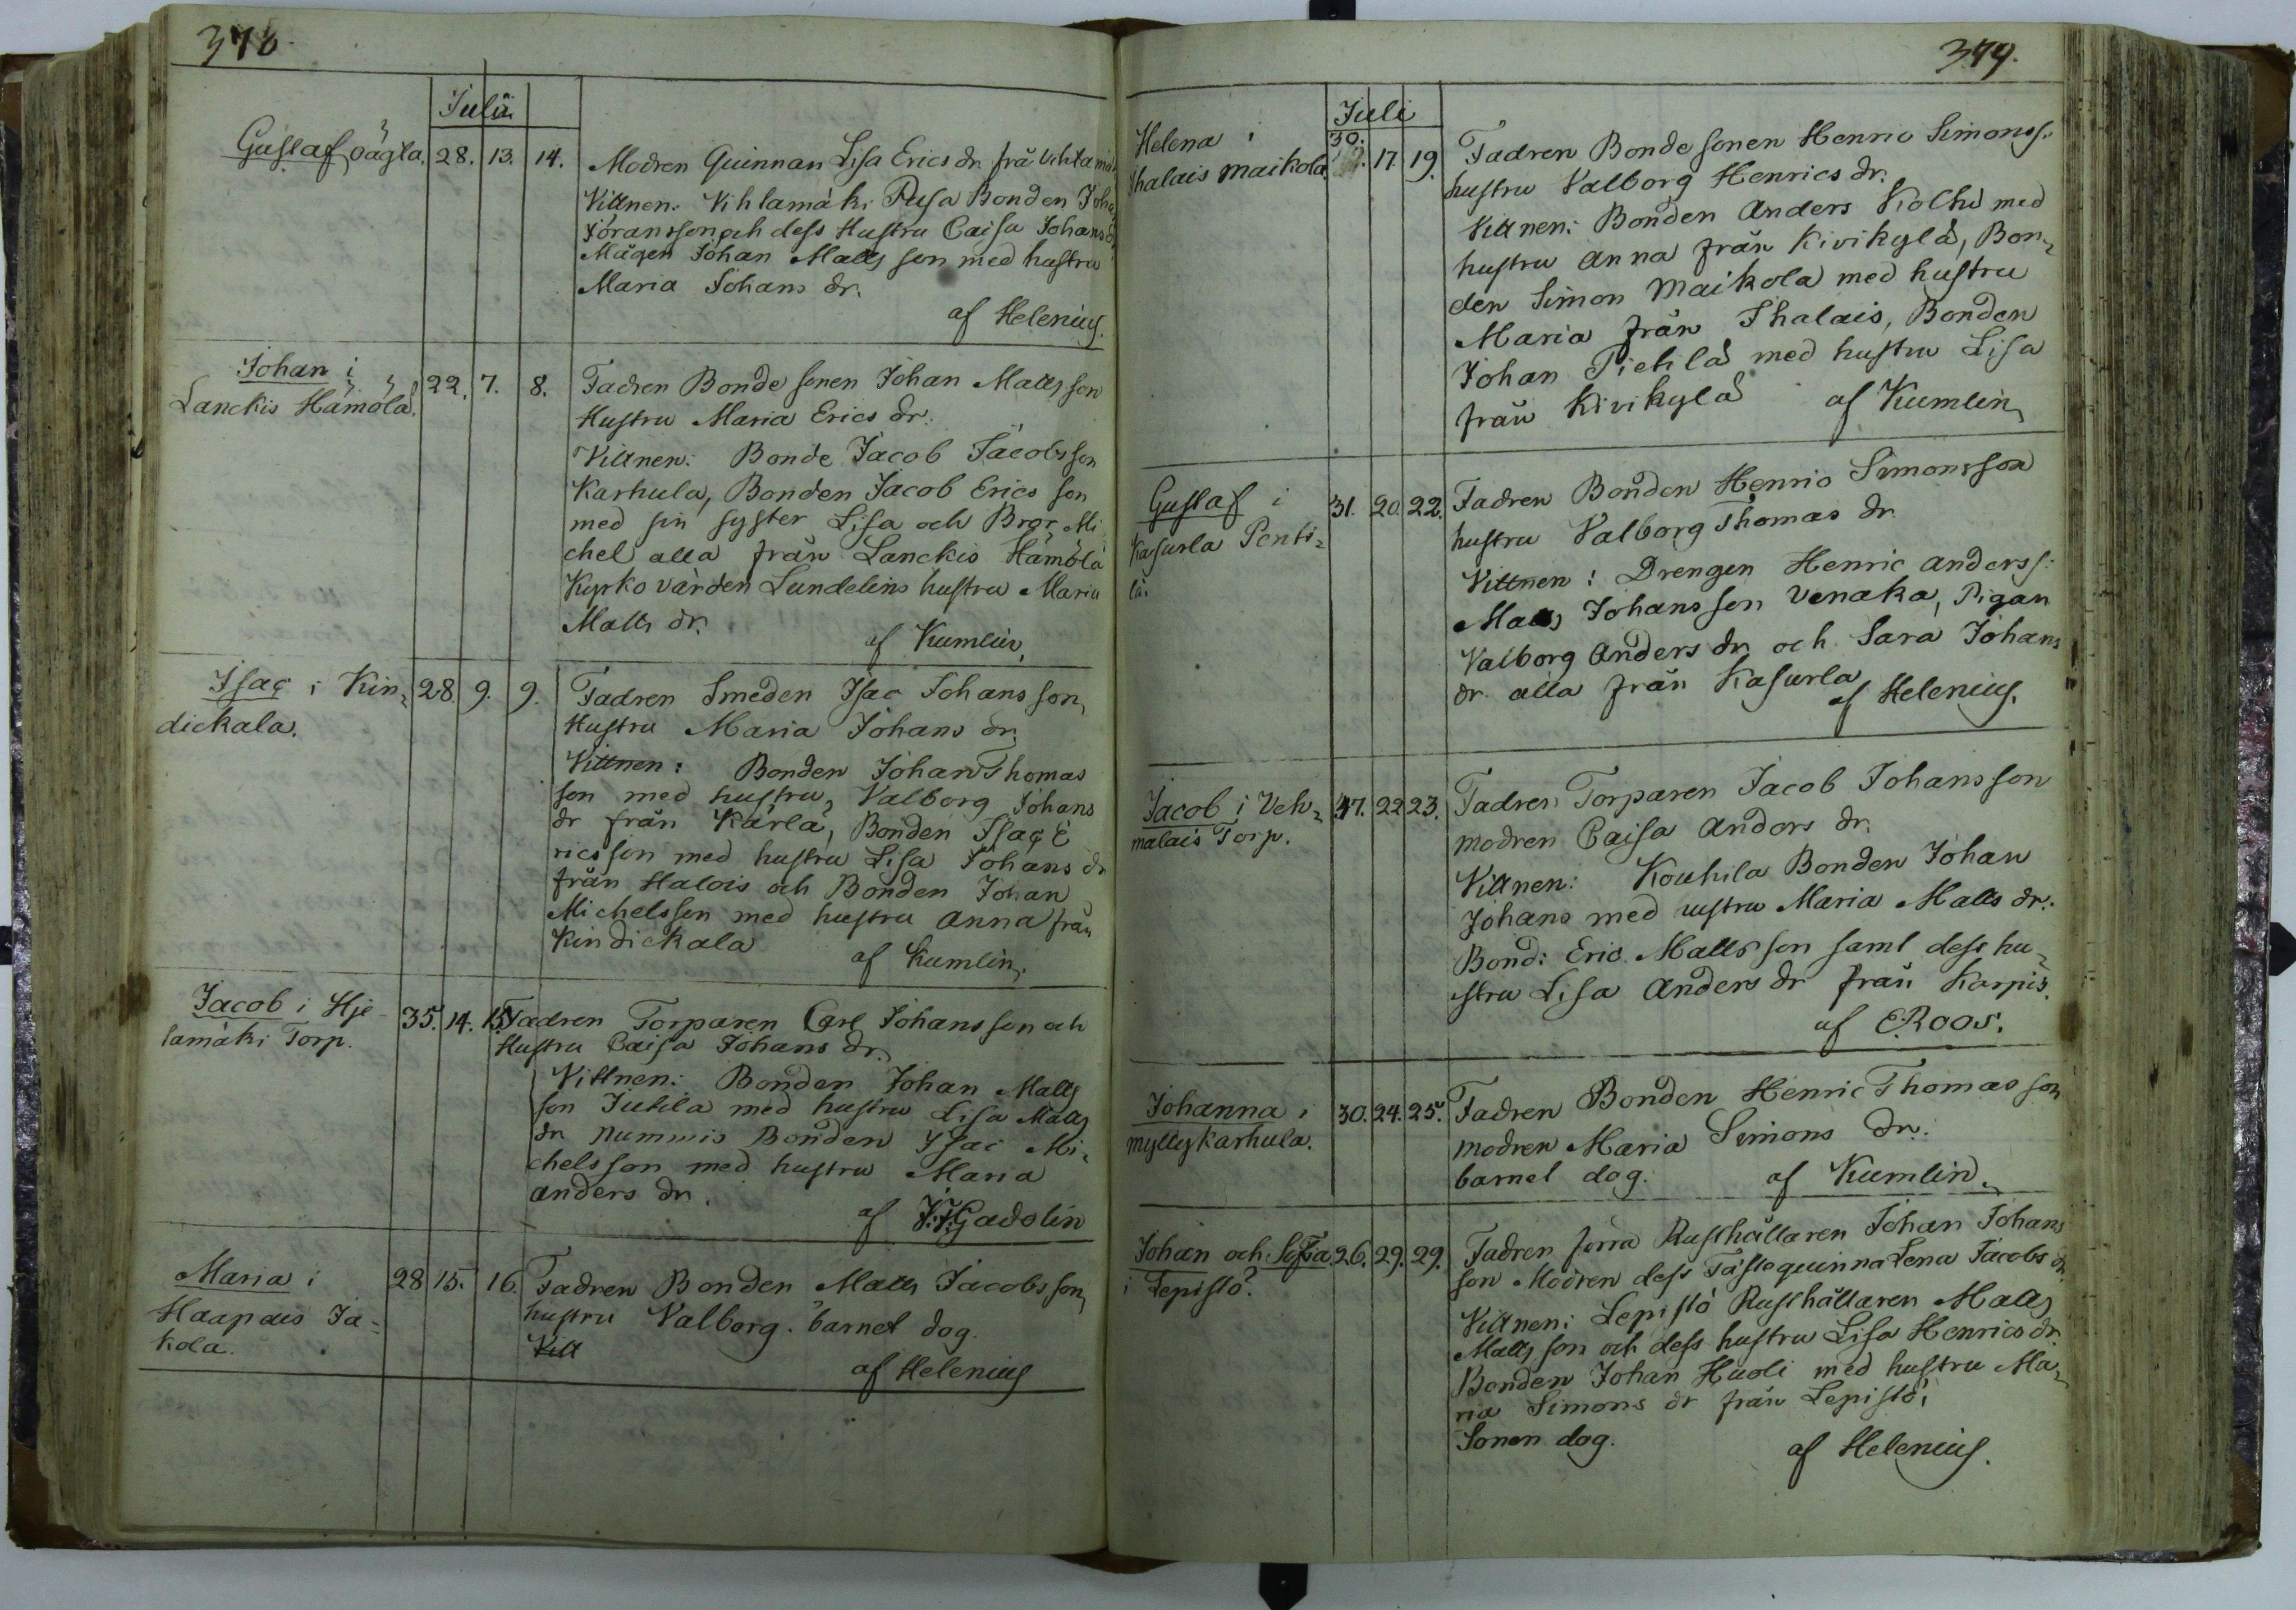 378.
Julii
Gustaf oägta. 28. 13. 14. Modren Quinnan Lisa Erics dr. frå Vihlamäki
Vittnen: Vihlamäki Rusa Bonden Joha
Jöransson och dess Hustru Caisa Johans dr
Mågen Johan Matts son med hustru
Maria Johans dr.
af Helenius.
Johan i 22. 7. 8. Fadren Bonde sonen Johan Matts son
Lanckis Hämölä. Hustru Maria Erics dr.
Vittnen: Bonde Jacob Jacobsson
Karhula, Bonden Jacob Erics son
med sin syster Lisa och Brgr Mi
chel alla från Lanckis Hämölä
Kyrko värden Lundelins hustru Maria
Matts dr.
af Kumlin.
Isac i Kin= 28. 9. 9. Fadren Smeden Isac Johansson,
dickala. Hustru Maria Johans dr.
Vittnen: Bonden Johan Thomas
son med hustru, Valborg Johans
dr från Kärlä, Bonden Isac E
ricsson med hustru Lisa Johans dr
från Halois och Bonden Johan
Michelsson med hustru Anna från
Kindickala
af Kumlin.
Jacob i Hje 35. 14. 15. Fadren Torparen Carl Johansson och
lamäki Torp. Hustru Caisa Johans dr.
Vittnen: Bonden Johan Matts
son Juhila med hustru Lisa Matts
dr Nummis Bonden Isac Mi=
chelsson med hustru Maria
Anders dr.
af J: J: Gadolin
Maria i 28 15. 16. Fadren Bonden Matts Jacobsson,
Haapais Ja= hustru Valborg. barnet dog.
kola. Vitt
af Helenius
379.
Juli
Helena i 30. 17. 19. Fadren Bonde sonen Henric Simonss.
Ihalais Maikola. hustru Valborg Henrics dr.
Vittnen: Bonden Anders Kolhi med
hustru Anna från Kivikylä, Bon=
den Simon Maikola med hustru
Maria från Ihalais, Bonden
Johan Pietilä med hustru Lisa
från Kivikylä
af Kumlin
Gustaf i 31. 20. 22. Fadren Bonden Henric Simonsson
Kasurla Penti= hustru Valborg Thomas dr.
lä. Vittnen: Drengen Henric Anderss:
Matts Johansson Venaka, Pigan
Valborg Anders dr och Sara Johans
dr. alla från Kasurla
af Helenius.
Jacob i Veh= 47. 22 23. Fadren Torparen Jacob Johansson
malais Torp. modren Caisa Anders dr.
Vittnen: Kouhila Bonden Johan
Johans med hustru Maria Matts dr.
Bond: Eric Matts son samt dess hu=
stru Lisa Anders dr från Karpis.
af E Roos.
Johanna i 30. 24. 25. Fadren Bonden Henric Thomasson
Myllykarhula. modren Maria Simons dr.
barnet dog.
af Kumlin.
Johan och Sofia 26. 29. 29. Fadren förra Rusthållaren Johan Johans
i Lepistö? son Modren dess Fästequinna Lena Jacobs dr.
Vittnen: Lepistö Rusthållaren Matts
Matts son och dess hustru Lisa Henrics dr.
Bonden Johan Huoli med hustru Ma=
ria Simons dr från Lepistö;
Sonen dog.
af Helenius.